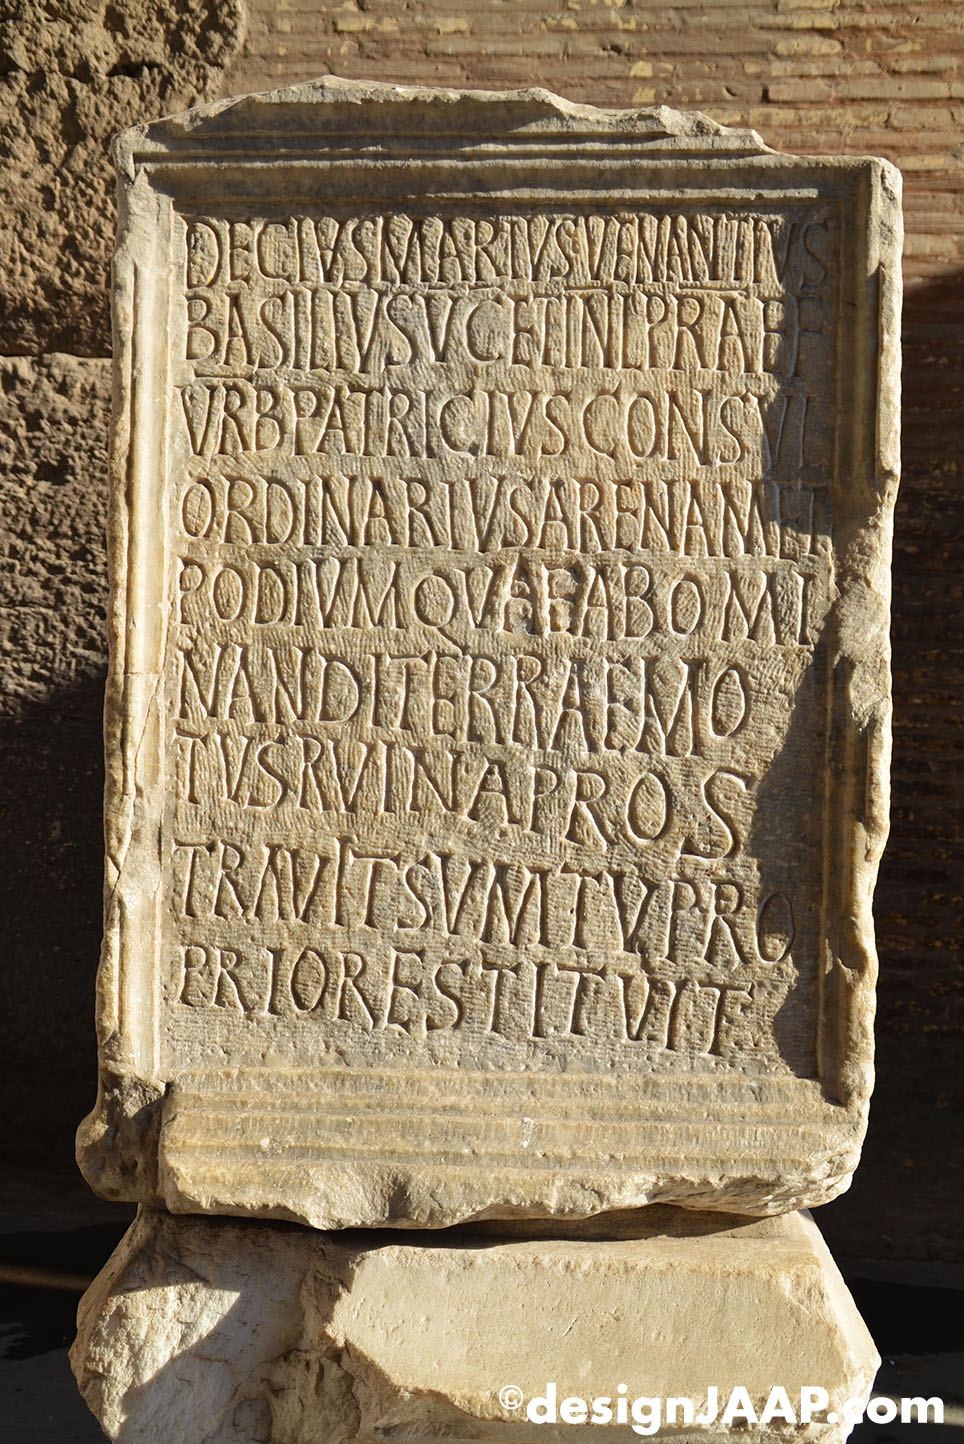 DECIVSMARIVSVENANTIVS
BASILIVSVCETINLPRAEF
VRBPATRICIVSCONSVL
ORDINARIVSARENAMET
PODIVMQVAEABOMI
NANDITERRAEMO
TVSRVINAPROS
TRAVITSVMTVPRO
PRIORESTITVIT
©designJAAP.com